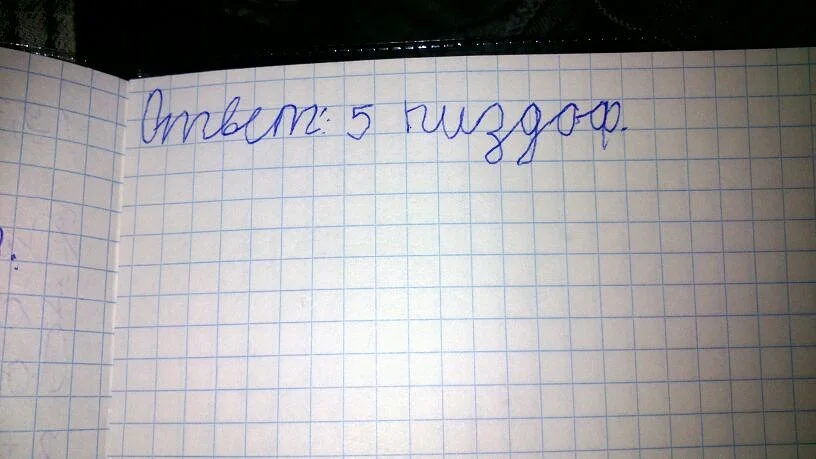 Ответ: 5 пиздоф.